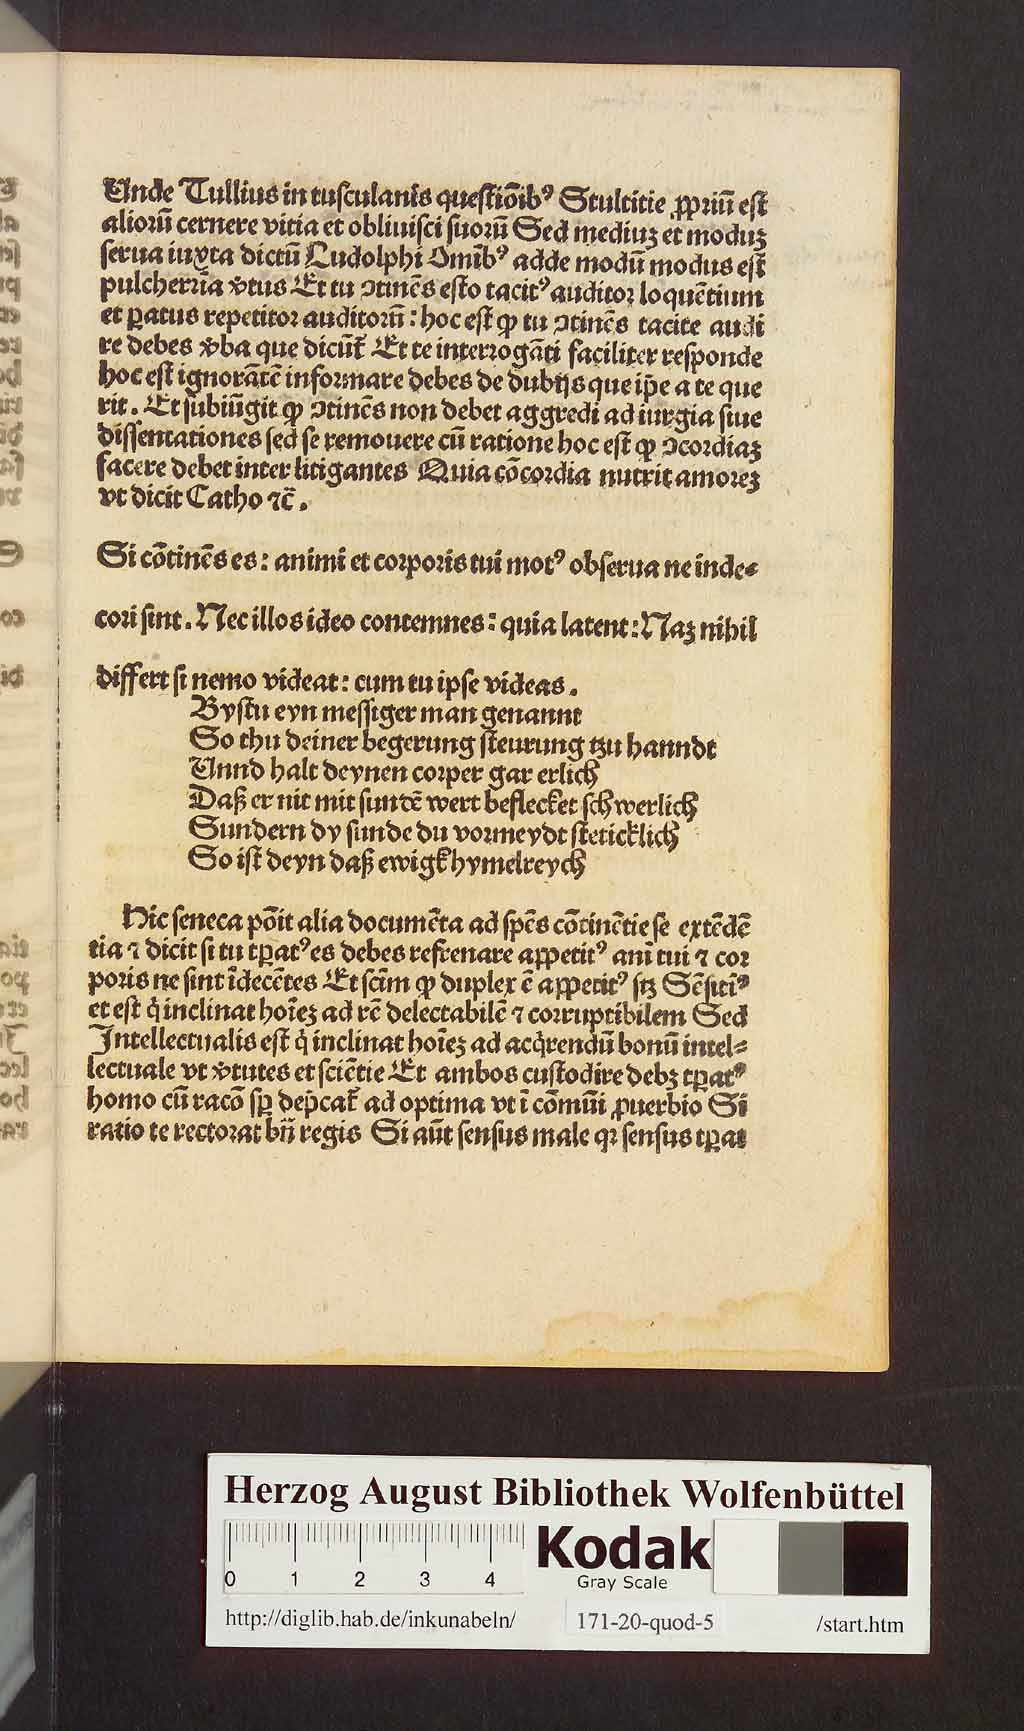 Unde Tullius in tusculanis questiōibꝰ Stultitie ꝓpriū est
aliorū cernere vitia et obliuisci suorū Sed mediuꝫ et moduꝫ
serua iuxta dictū Ludolphi Omībꝰ adde modū modus est
pulcherrīa v̓tus Et tu ꝯtinēs esto tacitꝰ auditor loquētium
et ꝑatus repetitor auditorū: hoc est ꝙ tu ꝯtinēs tacite audi
re debes v̓ba que dicūt᷑ Et te interrogāti faciliter responde
hoc est ignorātē informare debes de dubijs que ip̄e a te que
rit. Et subiūgit ꝙ ꝯtinēs non debet aggredi ad iurgia siue
dissentationes sed se remouere cū ratione hoc est ꝙ ꝯcordiaꝫ
facere debet inter litigantes Quia cōcordia nutrit amoreꝫ
vt dicit Catho ⁊c̄.
Si cōtinēs es: animi et corporis tui motꝰ obserua ne inde⸗
cori sint. Nec illos ideo contemnes: quia latent: Naꝫ nihil
differt si nemo videat: cum tu ipse videas.
Bystu eyn messiger man genannt
So thu deiner begerung steurung tzu hanndt
Unnd halt deynen corper gar erlich
Daß er nit mit sundē wert beflecket schwerlich
Sundern dy sunde du vormeydt steticklich
So ist deyn daß ewigk hymelreych
Hic seneca pōit alia documēta ad spēs cōtinētie se extēdē
tia ⁊ dicit si tu tꝑatꝰ es debes refrenare appetitꝰ anī tui ⁊ cor
poris ne sint īdecētes Et scīm ꝙ duplex ē appetitꝰ sꝫ Sēsitīꝰ
et est q̇ inclinat hoīeꝫ ad rē delectabilē ⁊ corruptibilem Sed
Intellectualis est q̇ inclinat hoīeꝫ ad acq̇rendū bonū intel⸗
lectuale vt v̓tutes et sciētie Et ambos custodire debꝫ tꝑatꝰ
homo cū racō sꝑ dep̄cat᷑ ad optima vt ī cōmūi ꝓuerbio Si
ratio te rectorat bn̄ regis Si aūt sensus male qꝛ sensus tꝑat
Herzog August Bibliothek Wolfenbüttel
0 1 2 3 4
Kodak
Gray Scale
http://diglib.hab.de/inkunabeln/ 171-20-quod-5 /start.htm